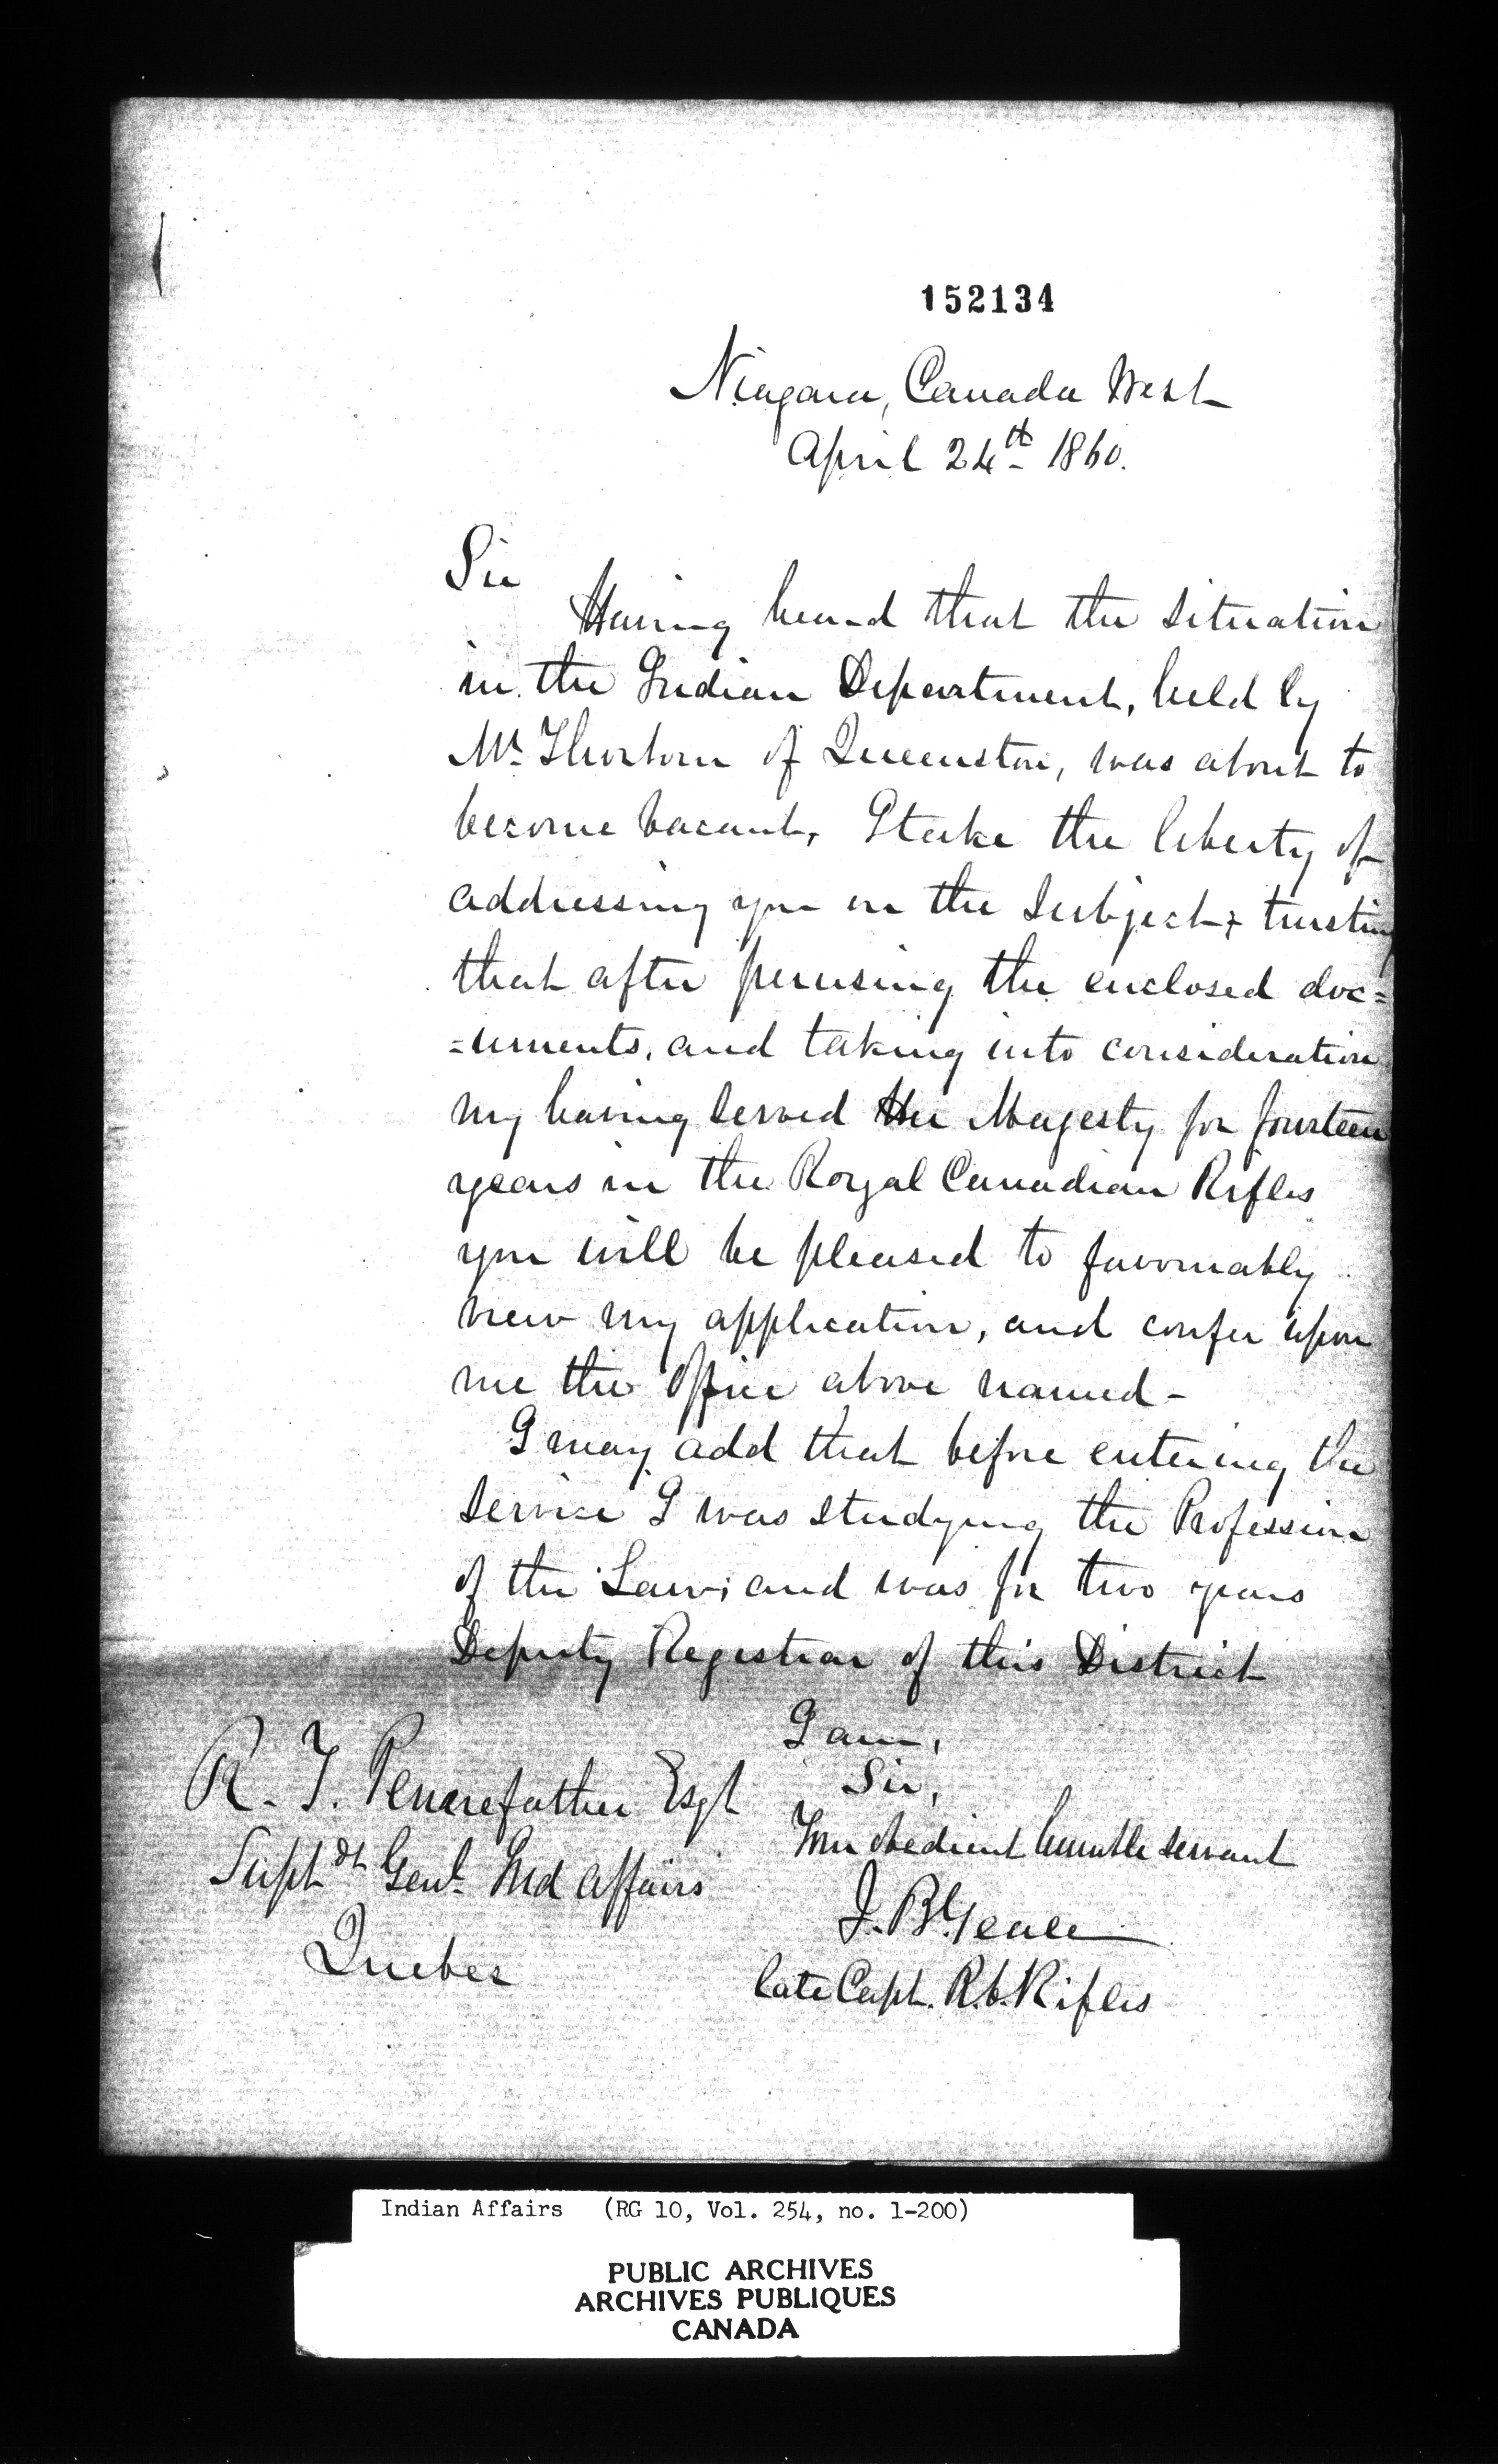 152134
Niagara, Canada West
April 24th 1860.
Sir
Having heard that the situation
in the Indian Department, held by
Mr. Thorborn of Queenston, was about to
become vacant, I take the liberty of
addressing you on the subject, trusting
that after perusing the enclosed doc=
=uments, and taking into consideration
my having served Her Majesty for fourteen
years in the Royal Canadian Rifles
you will be pleased to favourably
view my application, and confer upon
me the Office above named -
I may add that before entering the
service I was studying the Profession
of the Law; and was for two years
Deputy Registrar of this District
I am,
Sir,
Your obedient humble servant
J. B.
late Capt. R. C. Rifles
R. T. Pennefather Esqr
Supt dt Genl. Ind Affairs
Quebec
Indian Affairs (RG 10, Vol. 254, no. 1-200)
PUBLIC ARCHIVES
ARCHIVES PUBLIQUES
CANADA